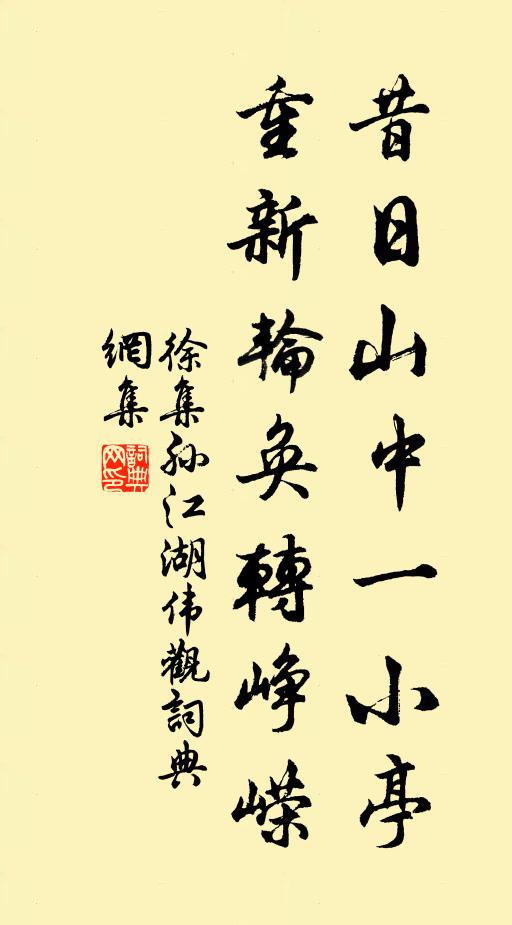 昔日山中一小亭
重新輪奐轉崢嶸
徐集孙江湖伟觀詞典
網集
詞典
网印